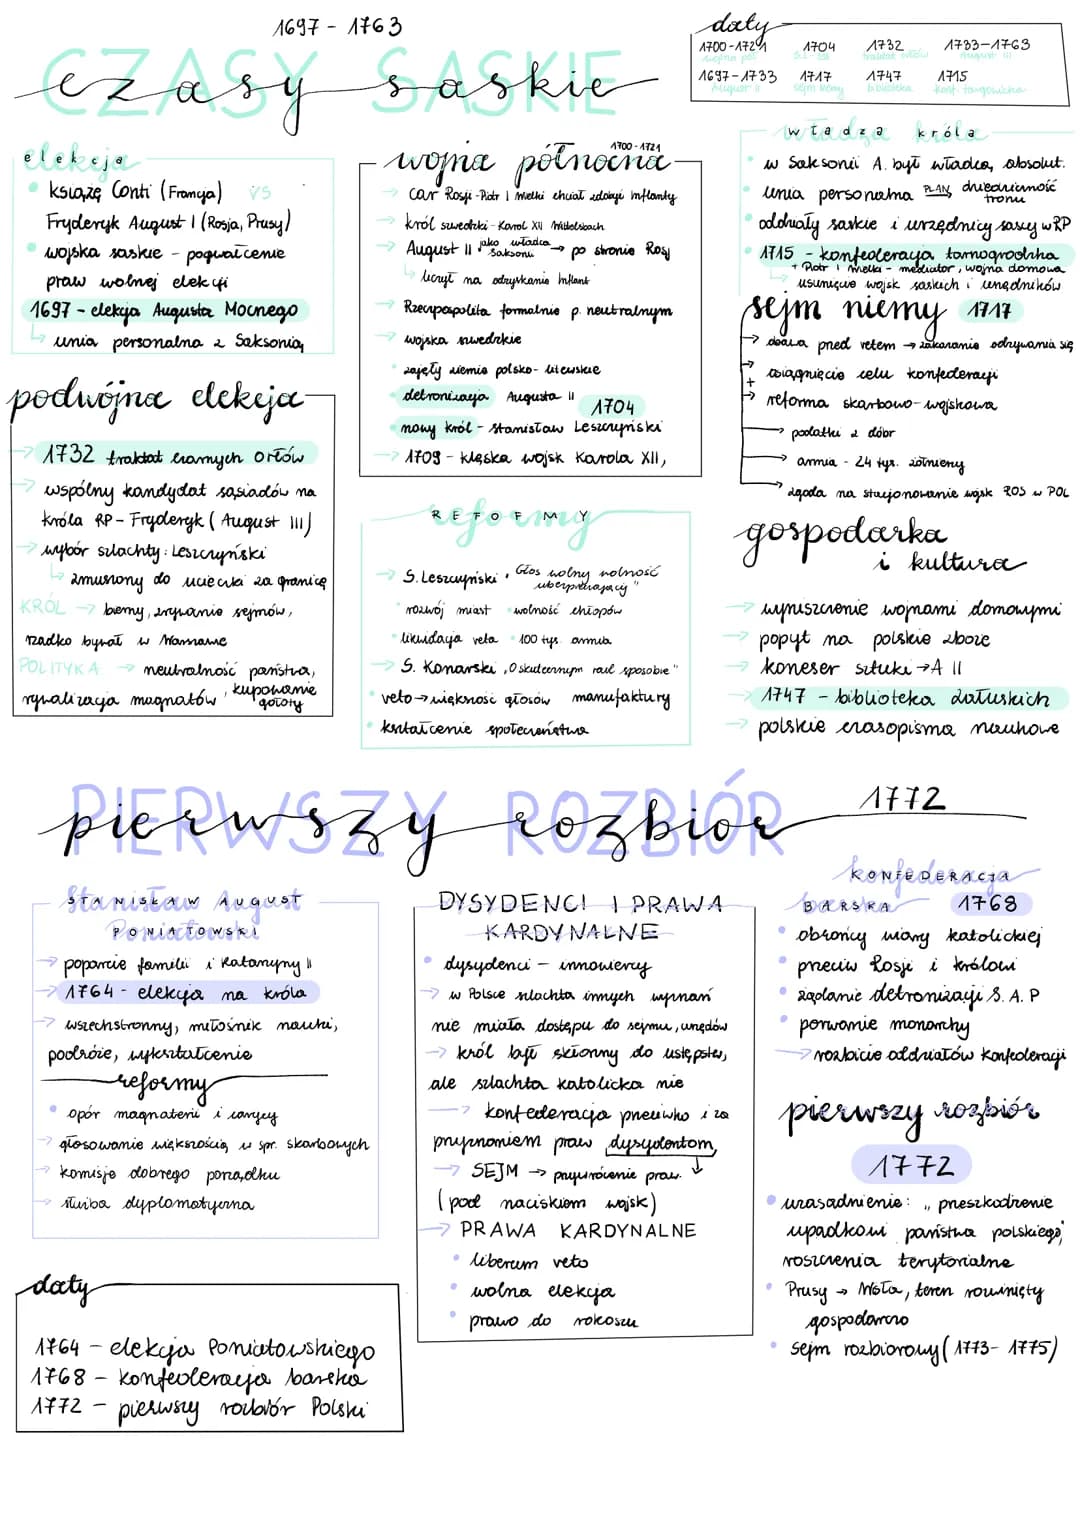 1697 - 1763
CZASY SASKIE
czasy saskie
daty
1700-1721 1704 1732 1733-1763
1697-1733 1717 1747 1715
August II sejm niemy biblioteka konf. targowicka
elekcja
książę Conti (Francja) VS
Fryderyk August I (Rosja, Prusy)
wojska saskie - pogwałcenie
praw wolnej elekcji
1697 - elekcja Augusta Mocnego
unia personalna z Saksonią
podwójna elekcja
1732 traktat czarnych orłów
wspólny kandydat sąsiadów na
króla RP - Fryderyk (August III)
wybór szlachty: Leszczyński
zmuszony do ucieczki za granicę
KRÓL → bierny, zrywanie sejmów,
rzadko bywał w Warszawie
POLITYKA → neutralność państwa,
rywalizacja magnatów, kupowanie
głosów
wojna północna 1700-1721
car Rosji - Piotr I Wielki chciał zdobyć Inflanty
król szwedzki - Karol XII
August II jako władca Saksonii → po stronie Rosji
liczył na odzyskanie Inflant
Rzeczpospolita formalnie p. neutralnym
wojska szwedzkie
zajęły ziemie polsko-litewskie
detronizacja Augusta II 1704
nowy król - Stanisław Leszczyński
1709 - klęska wojsk Karola XII,
REFORMY
S. Leszczyński "Głos wolny wolność
ubezpieczający"
rozwój miast wolność chłopów
likwidacja veta 100 tyś. armia
S. Konarski "O skutecznym rad sposobie"
veto → większość głosów manufaktury
kształcenie społeczeństwa
władza króla
w Saksonii A. był władcą absolut.
unia personalna PLAN dziedziczność
tronu
oddziały saskie i urzędnicy sascy w RP
1715 - konfederacja tarnogrodzka
+ Piotr I Wielki - mediator, wojna domowa
usunięcie wojsk saskich i urzędników
sejm niemy 1717
obawa przed vetem → zakazanie odzywania się
osiągnięcie celu konfederacji
+
reforma skarbowo-wojskowa
podatki z dóbr
armia - 24 tyś. żołnierzy
zgoda na stacjonowanie wojsk ROS w POL
gospodarka
i kultura
wyniszczenie wojnami domowymi
popyt na polskie zboże
koneser sztuki → A II
1747 - biblioteka Załuskich
polskie czasopisma naukowe
PIERWSZY ROZBIÓR
pierwszy rozbiór 1772
STANISŁAW AUGUST
PONIATOWSKI
poparcie familii i Katarzyny II
1764 - elekcja na króla
wszechstronny, miłośnik nauki,
podróże, wykształcenie
reformy
opór magnaterii i carycy
głosowanie większością w spr. skarbowych
komisje dobrego porządku
służba dyplomatyczna
daty
1764 - elekcja Poniatowskiego
1768 - konfederacja barska
1772 - pierwszy rozbiór Polski
DYSYDENCI I PRAWA
KARDYNALNE
dysydenci - innowiercy
w Polsce szlachta innych wyznań
nie miała dostępu do sejmu, urzędów
król był skłonny do ustępstw,
ale szlachta katolicka nie
konfederacja przeciwko i za
przyznaniem praw dysydentom
SEJM → przywrócenie praw.
(pod naciskiem wojsk)
PRAWA KARDYNALNE
liberum veto
wolna elekcja
prawo do rokoszu
KONFEDERACJA
BARSKA 1768
obrońcy wiary katolickiej
przeciw Rosji i królowi
żądanie detronizacji S. A. P
porwanie monarchy
rozbicie oddziałów konfederacji
pierwszy rozbiór
1772
uzasadnienie: "przeszkodzenie
upadkowi państwa polskiego",
roszczenia terytorialne
Prusy → Wisła, teren rozwinięty
gospodarczo
sejm rozbiorowy (1773-1775)